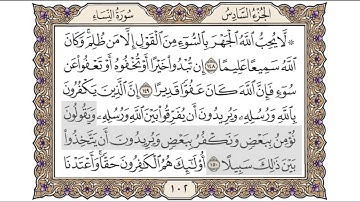 الجزء السادس
سورة النساء
۞ لَّا يُحِبُّ ٱللَّهُ ٱلْجَهْرَ بِٱلسُّوٓءِ مِنَ ٱلْقَوْلِ إِلَّا مَن ظُلِمَ ۚ وَكَانَ
ٱللَّهُ سَمِيعًا عَلِيمًا ١٤٨ إِن تُبْدُوا۟ خَيْرًا أَوْ تُخْفُوهُ أَوْ تَعْفُوا۟ عَن
سُوٓءٍ فَإِنَّ ٱللَّهَ كَانَ عَفُوًّا قَدِيرًا ١٤٩ إِنَّ ٱلَّذِينَ يَكْفُرُونَ
بِٱللَّهِ وَرُسُلِهِۦ وَيُرِيدُونَ أَن يُفَرِّقُوا۟ بَيْنَ ٱللَّهِ وَرُسُلِهِۦ وَيَقُولُونَ
نُؤْمِنُ بِبَعْضٍ وَنَكْفُرُ بِبَعْضٍ وَيُرِيدُونَ أَن يَتَّخِذُوا۟
بَيْنَ ذَٰلِكَ سَبِيلًا ١٥٠ أُو۟لَٰٓئِكَ هُمُ ٱلْكَٰفِرُونَ حَقًّا ۚ وَأَعْتَدْنَا
١٠٢